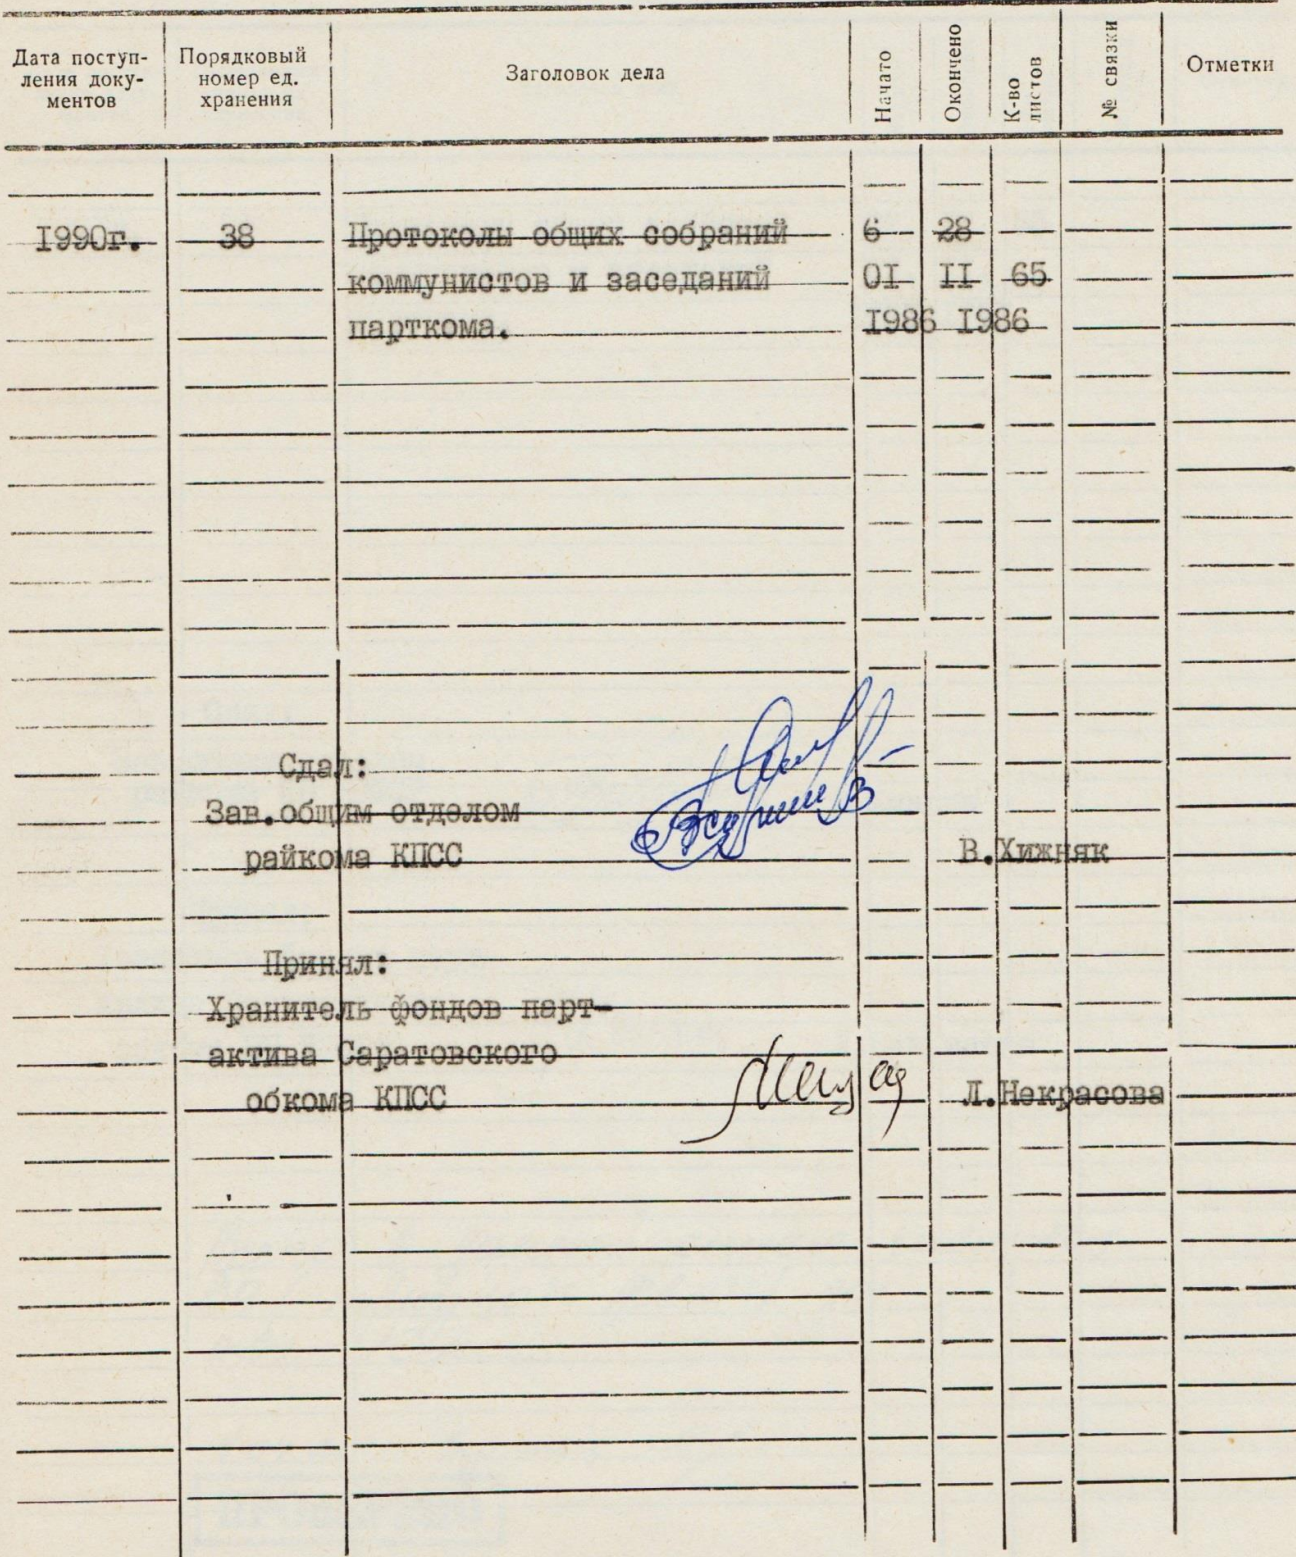 Дата поступ-
ления доку-
ментов
Порядковый
номер ед.
хранения
Заголовок дела
Начато
Окончено
К-во
листов
№ связки
Отметки
I990г. 38 Протоколы общих собраний 6 28
коммунистов и заседаний 0I II 65
парткома. I986 I986
Сдал:
Зав.общим отделом
райкома КПСС В.Хижняк
Принял:
Хранитель фондов парт-
актива Саратовского
обкома КПСС Л.Некрасова